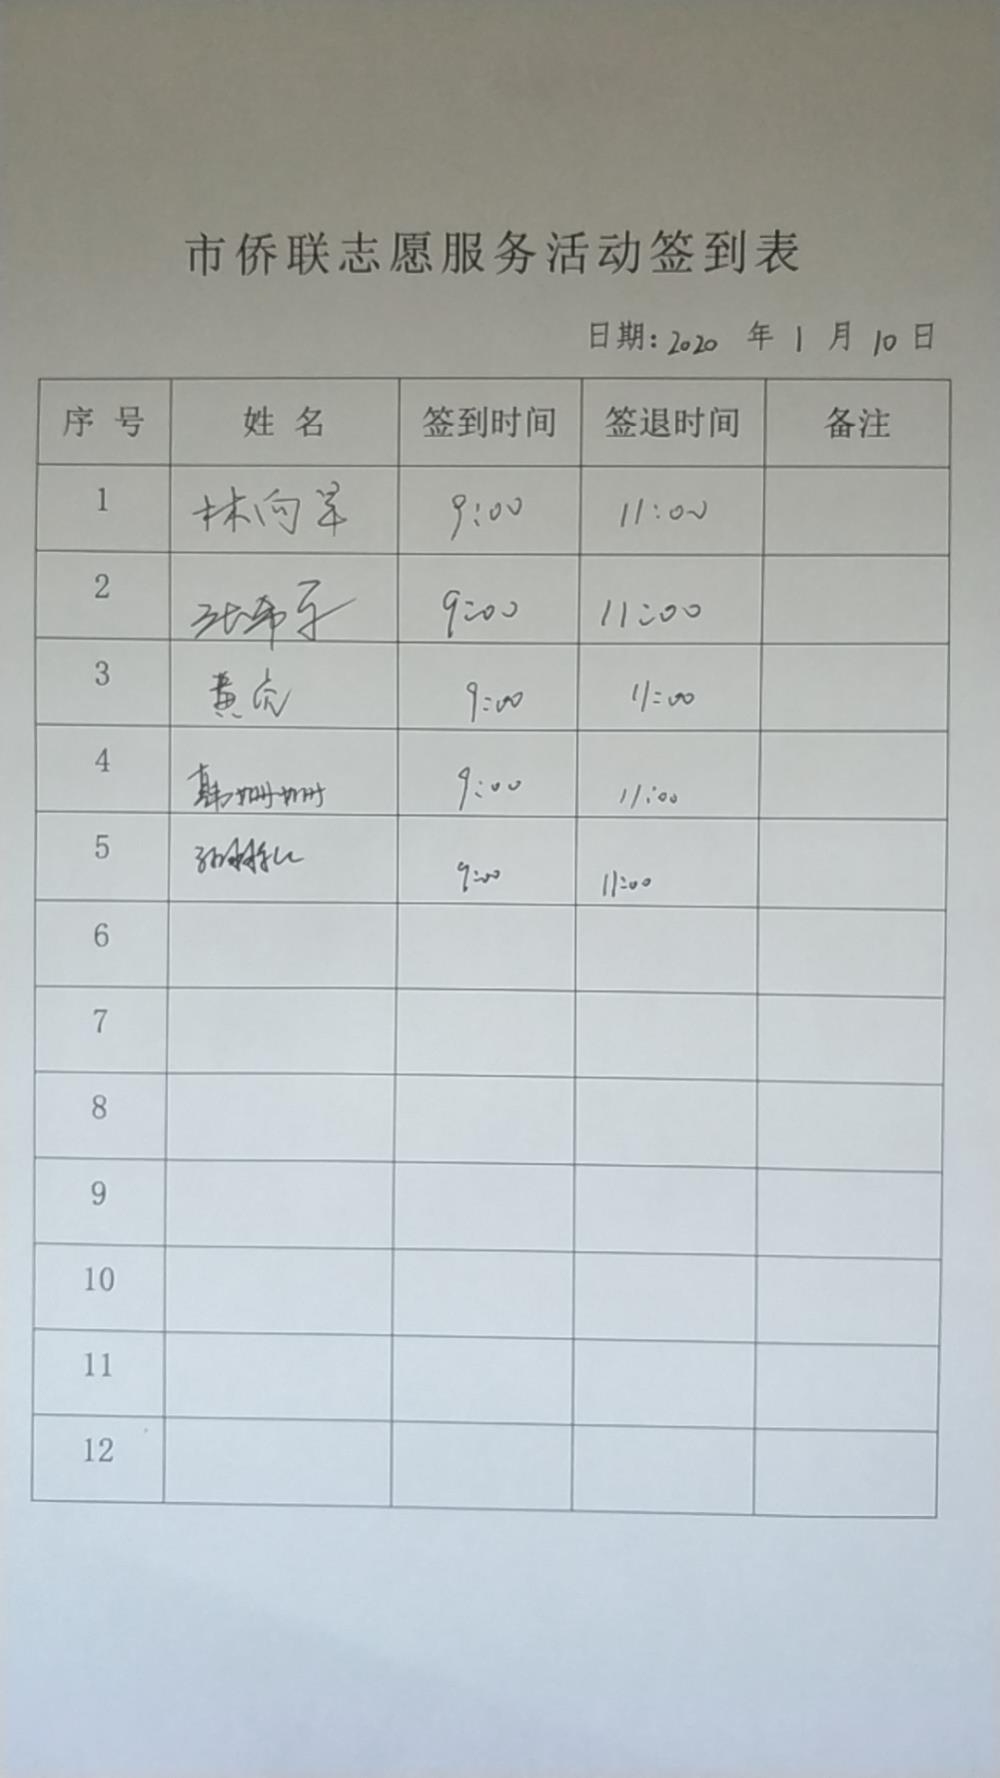 市侨联志愿服务活动签到表
日期: 2020 年 1 月 10 日
序号 姓名 签到时间 签退时间 备注
1 林向早 9:00 11:00
2 9:00 11:00
3 黄贞 9:00 11:00
4 韩姗姗 9:00 11:00
5 9:00 11:00
6
7
8
9
10
11
12